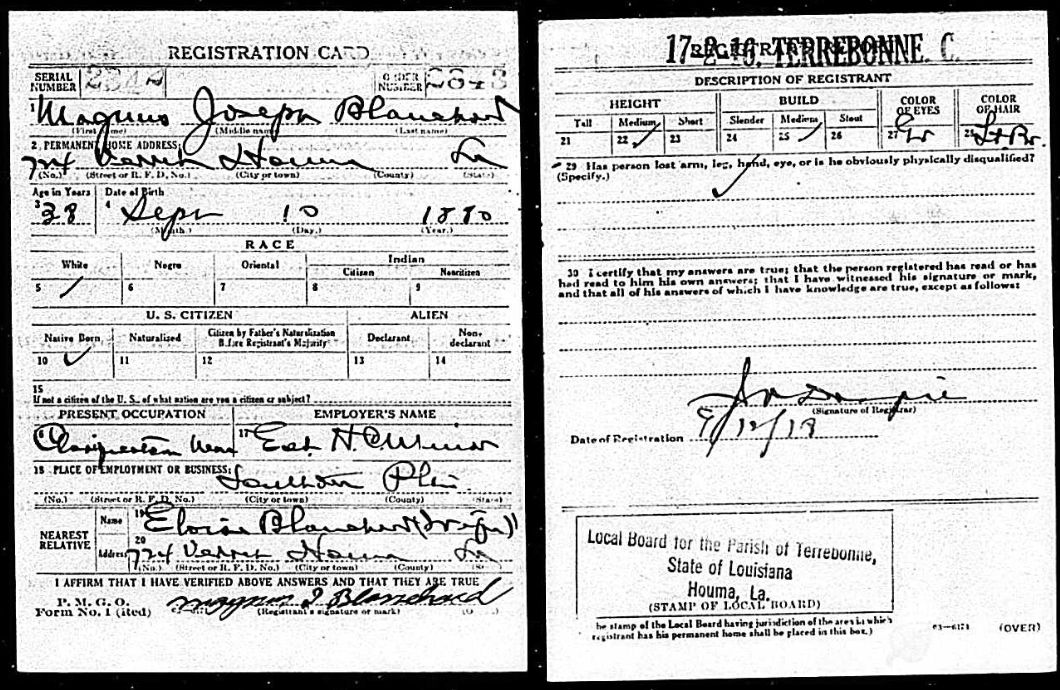 REGISTRATION CARD
SERIAL NUMBER 2342 ORDER NUMBER
1 Magnus Joseph Blanchard
(First name) (Middle name) (Last name)
2 PERMANENT HOME ADDRESS:
724 Verret Houma La
(No.) (Street or R. F. D. No.) (City or town) (County) (State)
Age in Years Date of Birth
3 38 4 Sepr 10 1880
(Month.) (Day.) (Year.)
RACE
White Negro Oriental Indian
Citizen Noncitizen
5 ✓ 6 7 8 9
U. S. CITIZEN ALIEN
Native Born Naturalized Citizen by Father's Naturalization Before Registrant's Majority Declarant Non-declarant
10 ✓ 11 12 13 14
15
If not a citizen of the U. S., of what nation are you a citizen or subject?
PRESENT OCCUPATION EMPLOYER'S NAME
16 17 Est. H. C. Minor
18 PLACE OF EMPLOYMENT OR BUSINESS:
Southdown
(No.) (Street or R. F. D. No.) (City or town) (County) (State)
NEAREST RELATIVE Name 19 Blanchard (wife)
Address 20 724 Verret Houma La
(No.) (Street or R. F. D. No.) (City or town) (County) (State)
I AFFIRM THAT I HAVE VERIFIED ABOVE ANSWERS AND THAT THEY ARE TRUE
P. M. G. O.
Form No. 1 Magnus J Blanchard
(Registrant's signature or mark)
17-2-16. TERREBONNE C.
REGISTRAR'S REPORT
DESCRIPTION OF REGISTRANT
HEIGHT BUILD COLOR OF EYES COLOR OF HAIR
Tall Medium Short Slender Medium Stout
21 22 ✓ 23 24 25 ✓ 26 27 28 Lt Br.
29 Has person lost arm, leg, hand, eye, or is he obviously physically disqualified?
(Specify.)
✓
30 I certify that my answers are true; that the person registered has read or has
had read to him his own answers; that I have witnessed his signature or mark,
and that all of his answers of which I have knowledge are true, except as follows:
(Signature of Registrar)
Date of Registration 9/12/18
Local Board for the Parish of Terrebonne,
State of Louisiana
Houma, La.
(STAMP OF LOCAL BOARD)
he stamp of the Local Board having jurisdiction of the area in which
registrant has his permanent home shall be placed in this box.)
03—6171 (OVER)